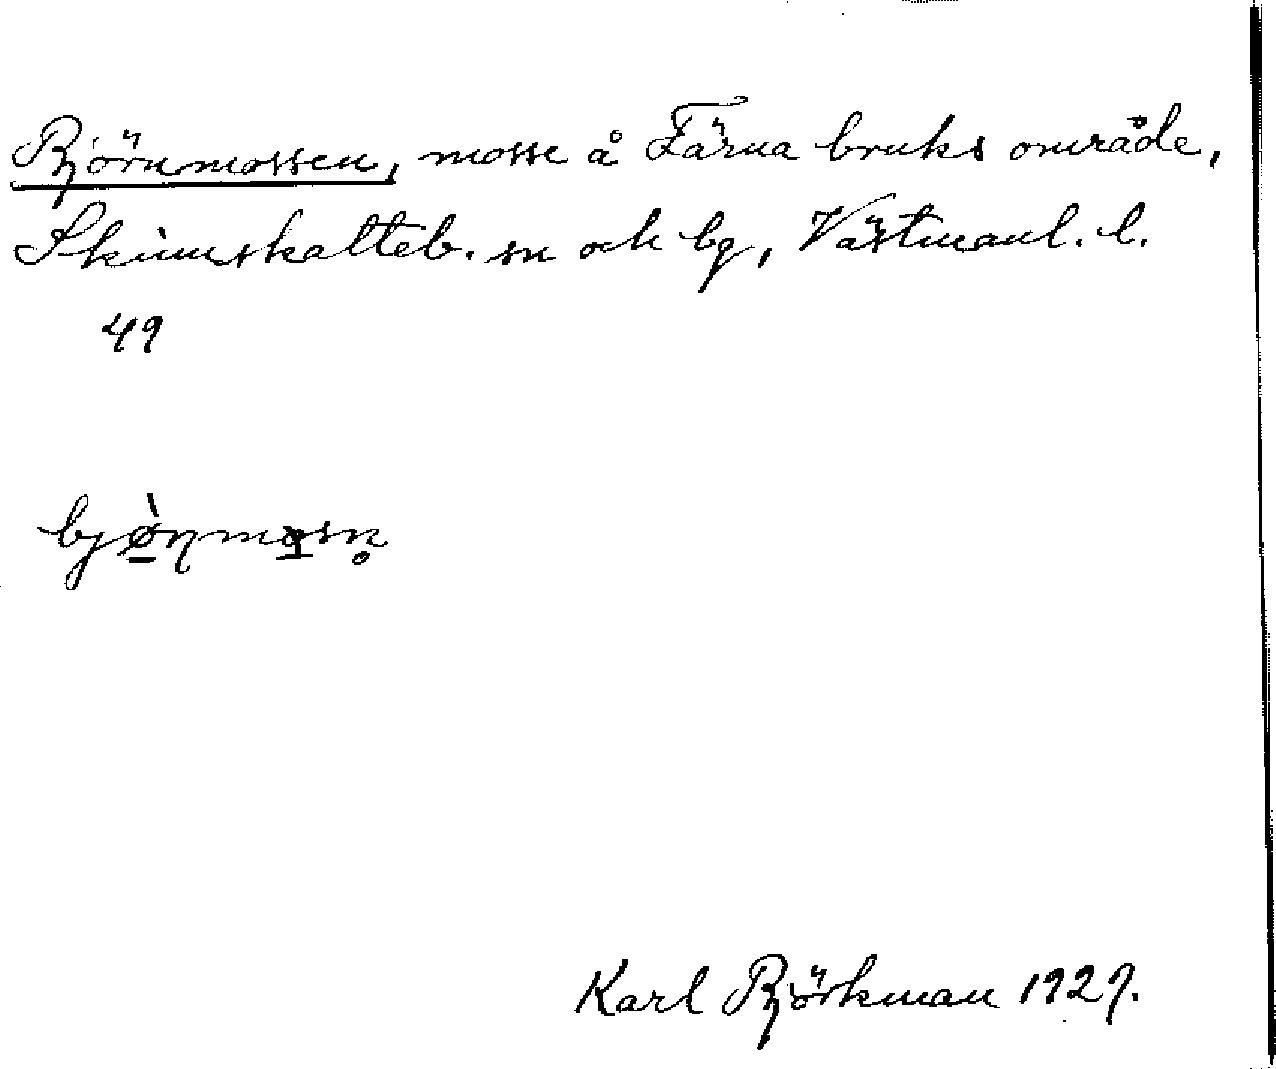 Björnmossen, mosse å Färna bruks område,
Skinnskatteb. sn och bg, Västmanl. l.
49
bjø̱̀ɳmo̱sn̥
Karl Björkman 1929.